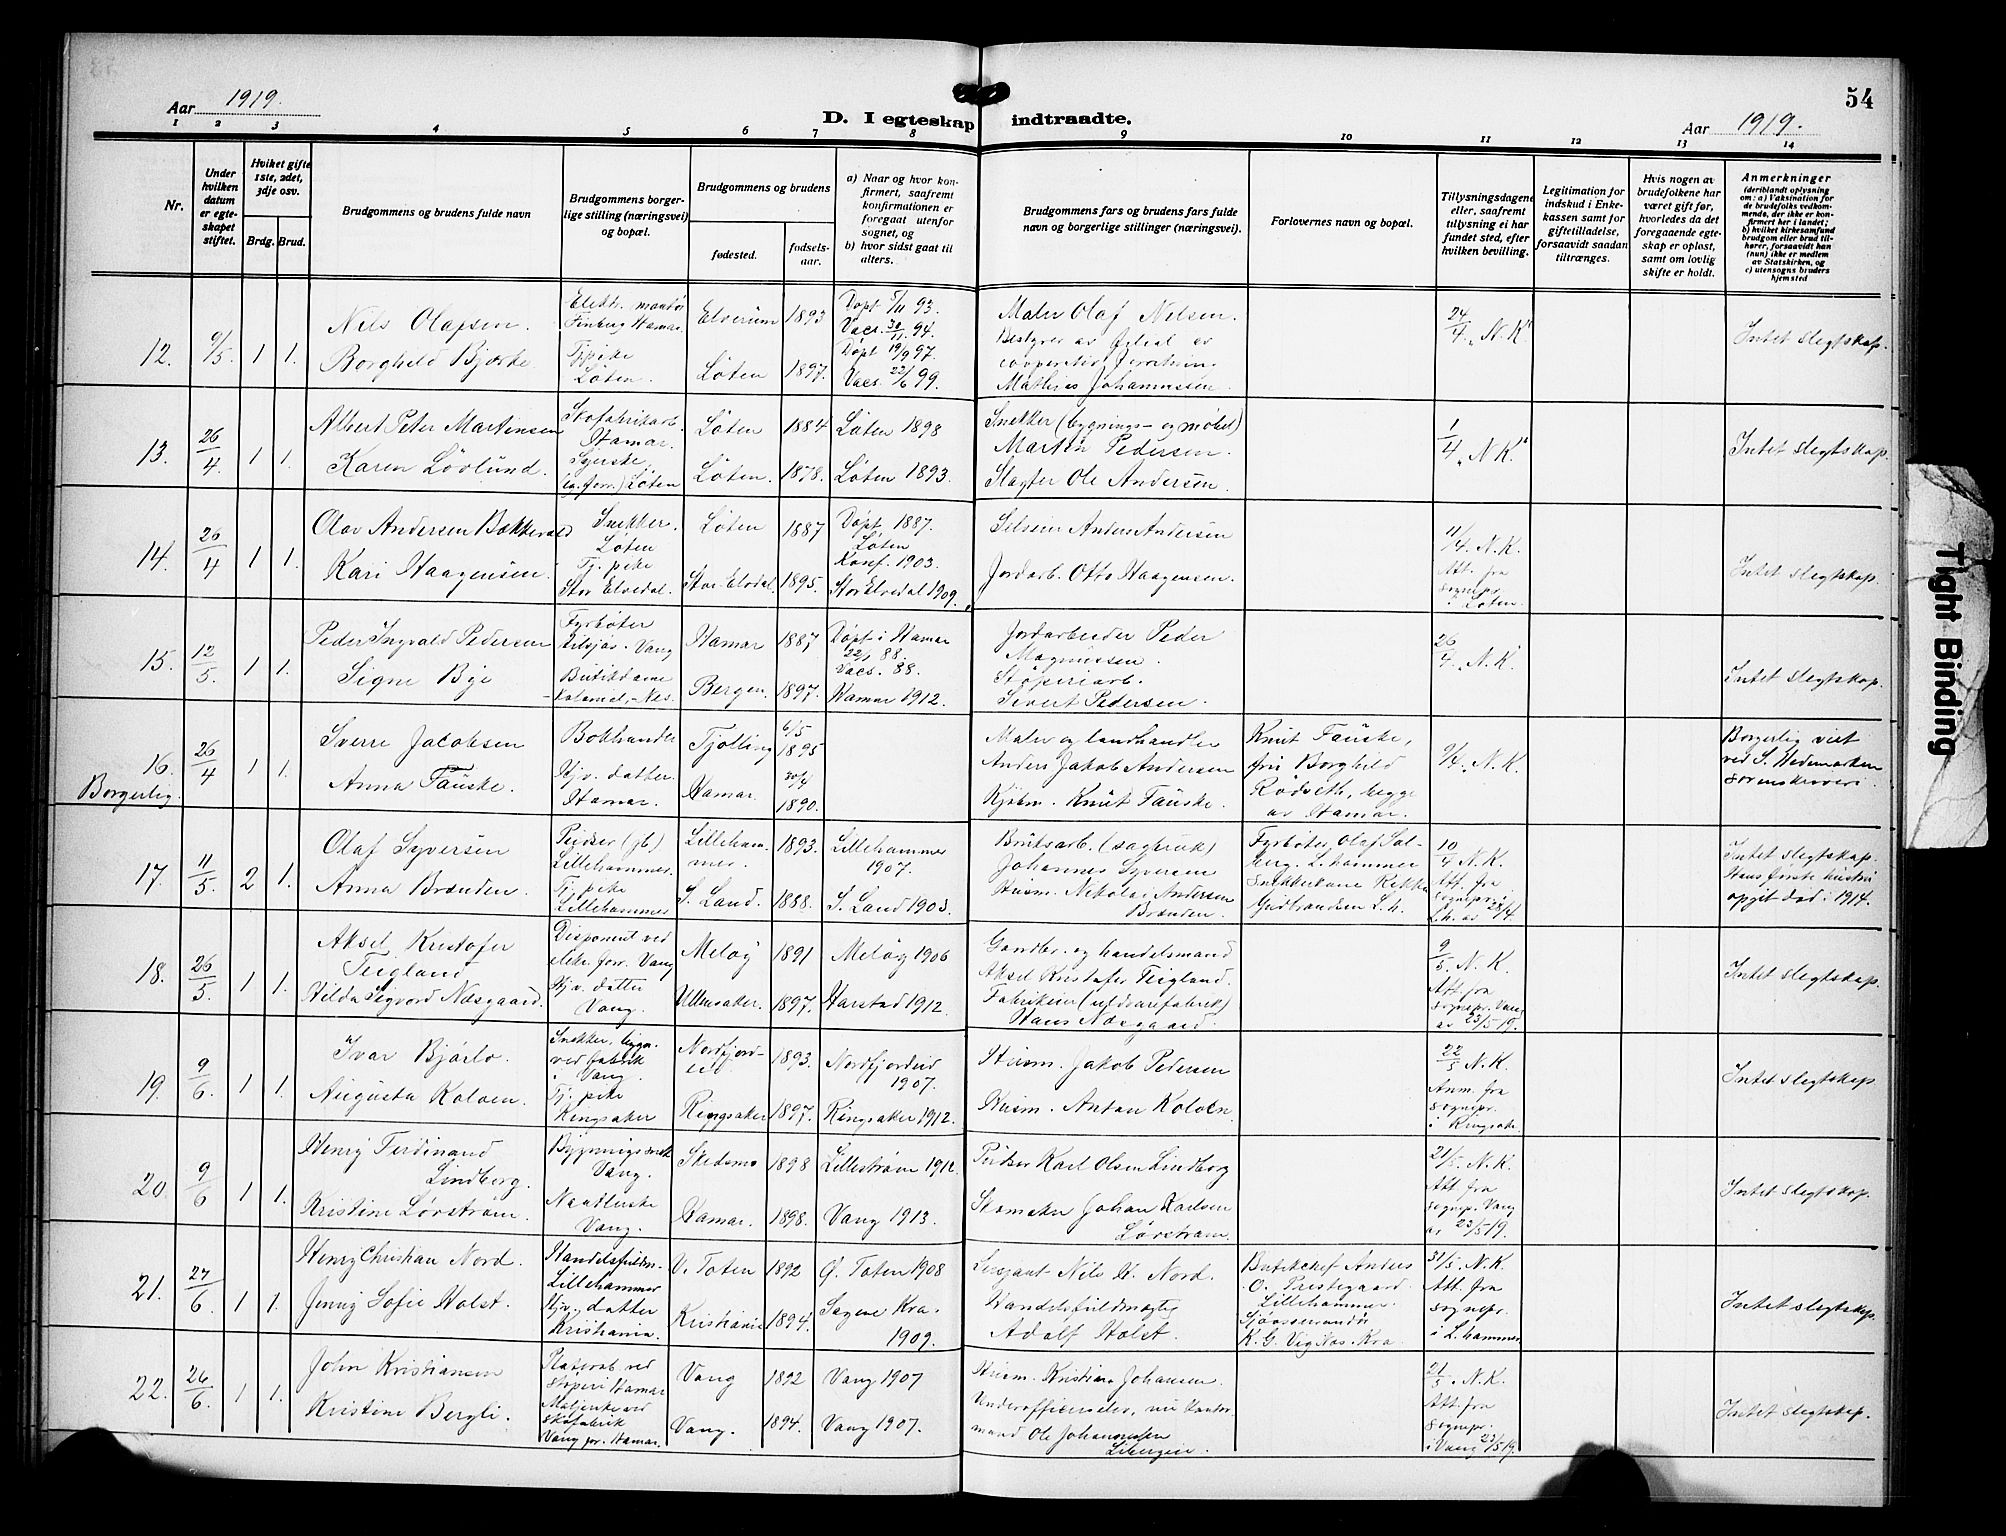 54
Aar 1919.
D. I egteskap indtraadte.
Aar 1919.
1 2 3 4 5 6 7 8 9 10 11 12 13 14
Nr.
Under hvilken datum er egteskapet stiftet.
Hviket gifte 1ste, 2det, 3dje osv.
Brdg. Brud.
Brudgommens og brudens fulde navn
Brudgommens borgerlige stilling (næringsvei) og bopæl.
Brudgommens og brudens
fødested. fødselsaar.
a) Naar og hvor konfirmert, saafremt konfirmationen er foregaat utenfor sognet, og
b) hvor sidst gaat til alters.
Brudgommens fars og brudens fars fulde navn og borgerlige stillinger (næringsvei).
Forlovernes navn og bopæl.
Tillysningsdagene eller, saafremt tillysning ei har fundet sted, efter hvilken bevilling.
Legitimation for indskud i Enkekassen samt for giftetilladelse, forsaavidt saadan tiltrænges.
Hvis nogen av brudefolkene har været gift før, hvorledes da det foregaaende egteskap er opløst, samt om lovlig skifte er holdt.
Anmerkninger
(deriblandt oplysning om: a) Vaksination for de brudefolks vedkommende, der ikke er konfirmert her i landet;
b) hvilket kirkesamfund brudgom eller brud tilhører, forsaavidt han (hun) ikke er medlem av Statskirken, og
c) utensogns bruders hjemsted
12. 1 1.
Nils Olafsen.
Borghild Bjørke.
Elektr. montør
Hamar.
Tj. pike
Løten.
Elverum 1893
Løten 1897.
Døpt 5/11 93.
Vacs. 30/11 94.
Døpt 19/9 97.
Vacs. 22/6 99.
Maler Olaf Nilsen.
Bestyrer av filial av
Mathias Johannessen.
24/4. N.K.
Intet slegtskap.
13. 26/4 1 1.
Albert Peter Martinsen
Karen Lövlund.
Skofabrikarb.
Hamar.
Syerske
Løten
Løten 1884
Løten. 1878.
Løten 1898
Løten 1893.
Snekker (bygnings- og møbel)
Martin Pedersen.
Slagter Ole Andersen.
1/4. N.K.
Intet slegtskap.
14. 26/4 1 1.
Olav Andersen Bækkevold
Kari Haagensen.
Snekker.
Løten
Tj. pike
Stor Elvedal.
Løten 1887
Stor-Elvdal. 1895.
Døpt 1887.
Løten
Konf. 1903.
Stor Elvedal 1909.
Selveier Anders Andersen
Jordarb. Otto Haagensen.
11/4. N.K.
Att. fra
sognepr.
i Løten.
Intet slegtskap.
15. 12/5 1 1.
Peder Ingvald Pedersen
Signe Bye
Fyrbøter
Vang
Butikdame
Hamar 1887
Bergen. 1897.
Døpt i Hamar
22/1 88.
Vacs. 88.
Hamar 1912.
Jordarbeider Peder
Magnussen.
Støperiarb.
Sivert Pedersen.
26/4. N.K.
Intet slegtskap.
16. 26/4 1 1.
Borgerlig.
Sverre Jacobsen
Anna Fauske.
Bokhandler
Hjv. datter.
Hamar.
Tjølling 6/5 1895
Hamar. 30/4 1890.
Maler og landhandler
Anders Jakob Andersen
Kjøbm. Knut Fauske.
Knut Fauske,
fru Borghild
Rødseth, begge
av Hamar.
9/4. N.K.
Borgerlig viet
ved S. Hedemarken
sorenskriveri.
17. 11/5. 2 1.
Olaf Syversen
Anna Brænden.
Pudser (jb)
Lillehammer.
Tj. pike
Lillehammer
Lillehammer. 1893.
S. Land. 1888.
Lillehammer
1907.
S. Land 1903.
Bruksarb. (sagbruk)
Johannes Syversen
Husm. Nikolai Andersen
Brænden.
Fyrbøter Olaf Solberg. L.hammer
Gudbrandsen L.h.
10/4 N.K.
Att. fra
sognepr. i
L.h. av 28/4.
Intet slegtskap.
Hans første hustru
opgit død i 1914.
18. 26/5 1 1.
Aksel Kristofer
Teigland
Hilda Sigvord Næsgaard.
Disponent ved
elektr. forr. Vang
Hjv. datter
Vang.
Meløy 1891
Ullensaker. 1897.
Meløy 1906
Harstad 1912.
Gaardbr. og handelsmand
Aksel Kristofer Teigland.
Fabrikeier (uldvarefabrik)
Hans Næsgaard.
9/5. N.K.
Att. fra
sognepr. Vang
av 23/5 19.
Intet slegtskap.
19. 9/6. 1 1.
Ivar Bjørlo.
Augusta Kolven.
Snekker, bygn.
ved fabrik
i Vang.
Tj. pike
Ringsaker
Nordfjordeid 1893.
Ringsaker 1897.
Nordfjordeid
1907.
Ringsaker 1912.
Husm. Jakob Pedersen
Husm. Anton Kolven.
22/5 N.K.
Anm. fra
sognepr.
i Ringsaker.
Intet slegtskap
20. 9/6 1 1.
Henry Ferdinand
Lindberg.
Kristine Lørstrøm.
Bygningssnek.
Vang.
Vang.
Skedsmo 1898
Hamar. 1898.
Lillestrøm 1912.
Vang 1913.
Pudser Karl Olsen Lindberg
Skomaker Johan Karlsen
Lørstrøm.
21/5. N.K.
Att. fra
sognepr. Vang
av 23/5 19.
Intet slegtskap.
21. 27/6. 1 1.
Henry Christian Nord.
Jenny Sofie Holst.
Handelsfuldm.
Lillehammer
Hjv. datter
Kristiania.
V. Toten 1892
Kristiania 1894.
Ø. Toten 1908
Sagene Kra.
1909.
Sersjant Nils H. Nord.
Handelsfuldmægtig
Adolf Holst.
Butikchef Anders
O. Prestegaard
Lillehammer.
K. G. Kra.
31/5. N.K.
Att. fra
sognepr.
i L.hammer
Intet slegtskap.
22. 26/6. 1 1.
John Kristiansen
Kristine Bergli.
ved
støperi Hamar
ved
skofabrik
Vang pr. Hamar.
Vang 1892
Vang. 1894.
Vang 1907
Vang 1907.
Husm. Kristian Johansen.
Underofficerselev, nu kontormand Ole Johannessen
21/5. N.K.
Att. fra
sognepr.
i Vang 23/5 19.
Intet slegtskap.
Tight Binding